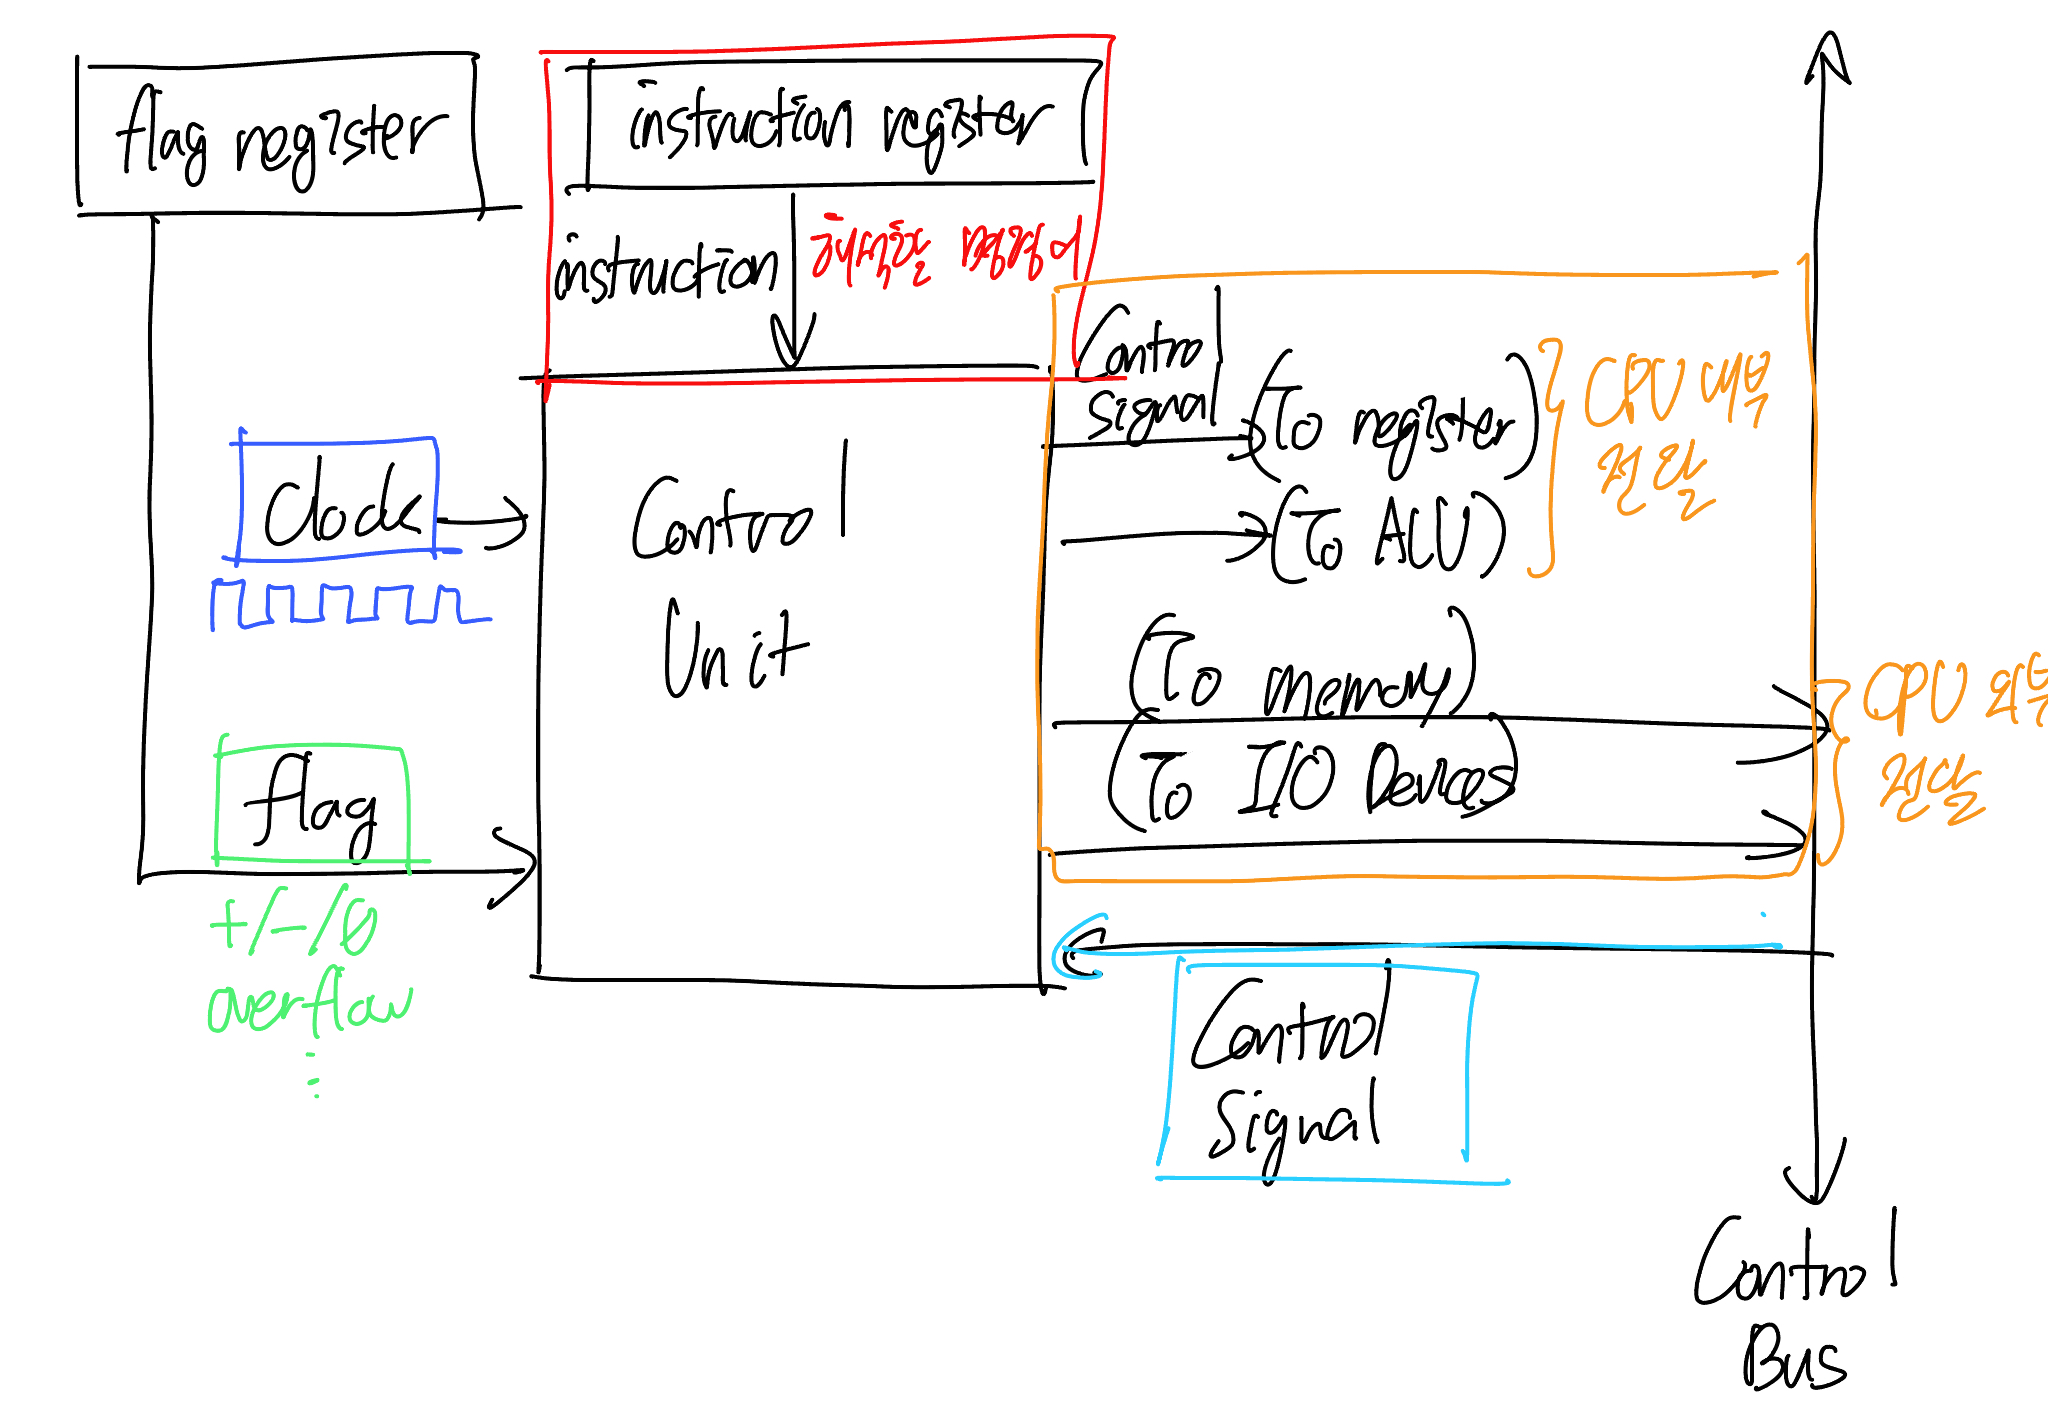 flag register
instruction register
instruction
해석할 명령어
Control
signal
(To register)
CPU 내부
전달
Clock
(To ALU)
Control
Unit
(To memory)
CPU 외부
전달
flag
(To I/O Devices)
+/-/0
overflow
Control
Signal
Control
Bus